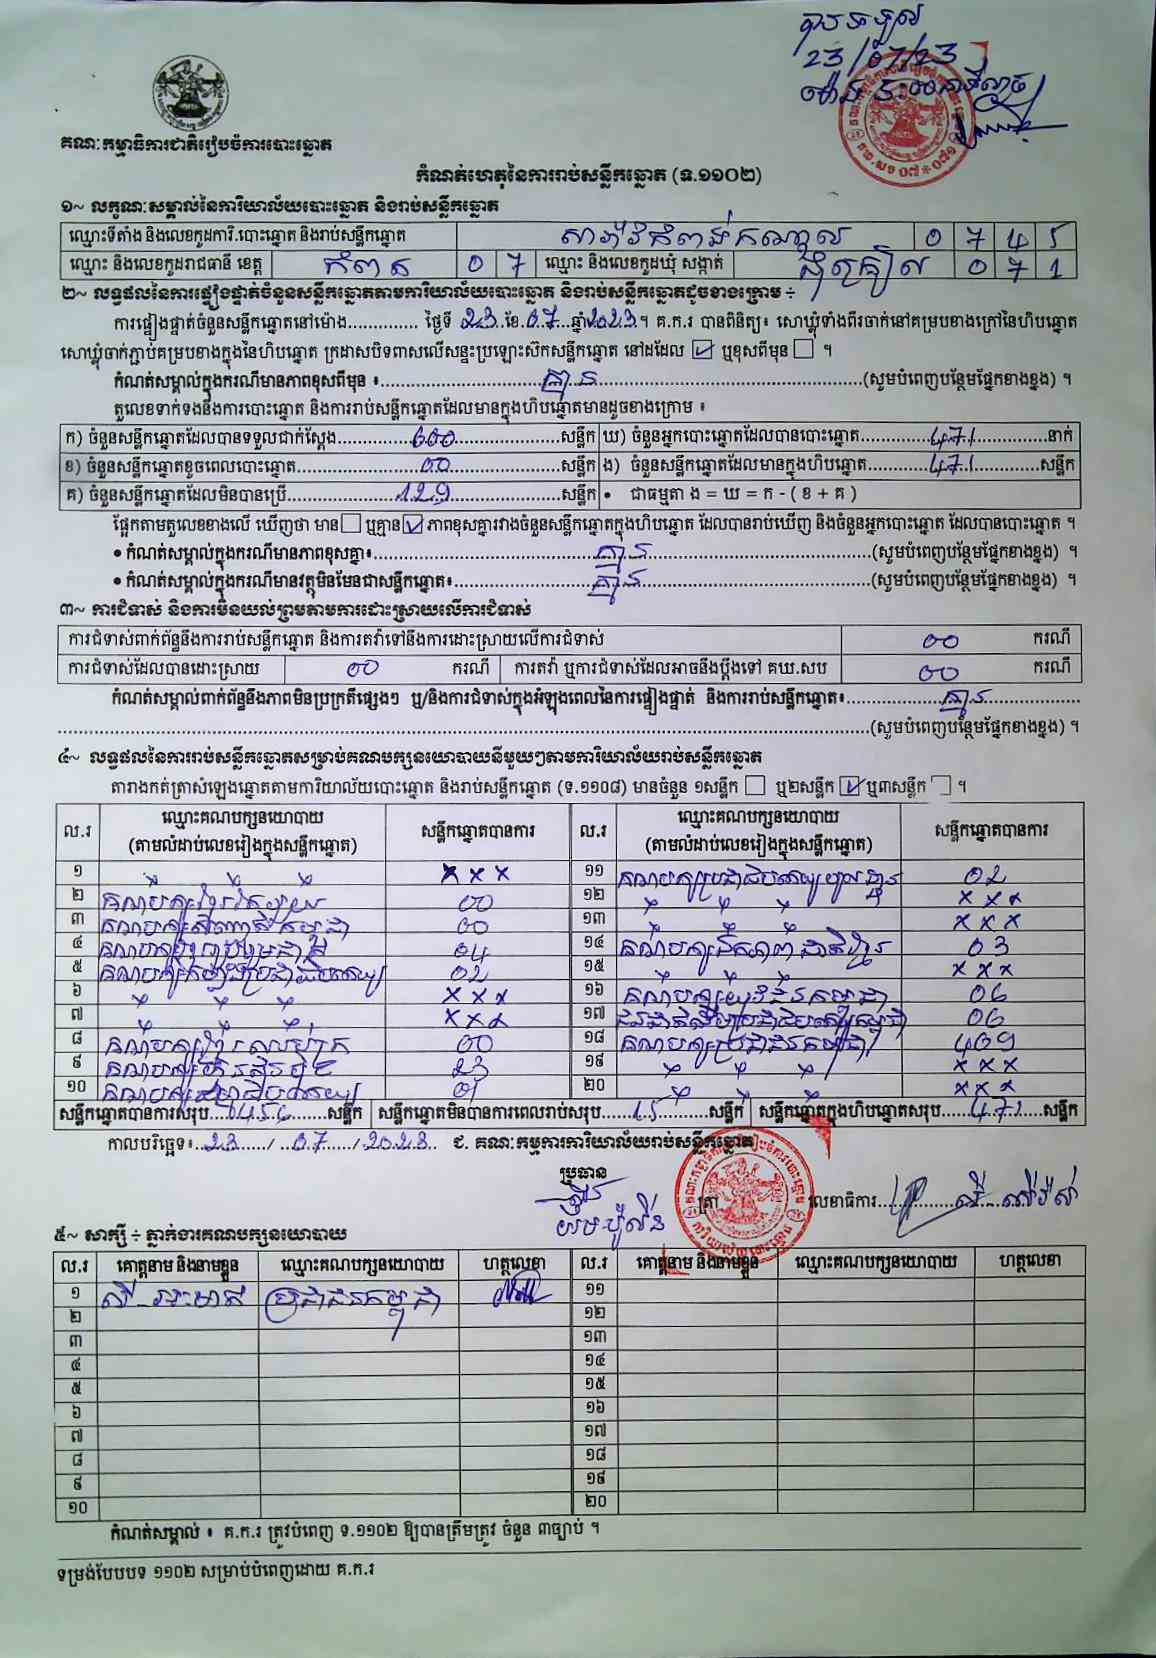 បានទទួល
23/07/23
ម៉ោង 5:00 នាទីល្ងាច
គណៈកម្មាធិការជាតិរៀបចំការបោះឆ្នោត
កំណត់ហេតុនៃការរាប់សន្លឹកឆ្នោត (ទ.១១០២)
១~ លក្ខណៈសម្គាល់នៃការិយាល័យបោះឆ្នោត និងរាប់សន្លឹកឆ្នោត
ឈ្មោះទីតាំង និងលេខកូដការិ.បោះឆ្នោត និងរាប់សន្លឹកឆ្នោត 0 7 4 5
ឈ្មោះ និងលេខកូដរាជធានី ខេត្ត កំពត 0 7 ឈ្មោះ និងលេខកូដឃុំ សង្កាត់ 0 7 1
២~ លទ្ធផលនៃការផ្ទៀងផ្ទាត់ចំនួនសន្លឹកឆ្នោតតាមការិយាល័យបោះឆ្នោត និងរាប់សន្លឹកឆ្នោតដូចខាងក្រោម ÷
ការផ្ទៀងផ្ទាត់ចំនួនសន្លឹកឆ្នោតនៅម៉ោង.............. ថ្ងៃទី 23 ខែ 07 ឆ្នាំ 2023 ។ គ.ក.រ បានពិនិត្យ៖ សោឃ្លុំទាំងពីរចាក់នៅគម្របខាងក្រៅនៃហិបឆ្នោត
សោឃ្លុំចាក់ភ្ជាប់គម្របខាងក្នុងនៃហិបឆ្នោត ក្រដាសបិទពាសលើសន្ទះប្រឡោះស៊កសន្លឹកឆ្នោត នៅដដែល ☑ ឬខុសពីមុន ☐ ។
កំណត់សម្គាល់ក្នុងករណីមានភាពខុសពីមុន ៖ គ្មាន (សូមបំពេញបន្ថែមផ្នែកខាងខ្នង) ។
តួលេខទាក់ទងនឹងការបោះឆ្នោត និងការរាប់សន្លឹកឆ្នោតដែលមានក្នុងហិបឆ្នោតមានដូចខាងក្រោម ៖
ក) ចំនួនសន្លឹកឆ្នោតដែលបានទទួលជាក់ស្តែង 600 សន្លឹក ឃ) ចំនួនអ្នកបោះឆ្នោតដែលបានបោះឆ្នោត 471 នាក់
ខ) ចំនួនសន្លឹកឆ្នោតខូចពេលបោះឆ្នោត 00 សន្លឹក ង) ចំនួនសន្លឹកឆ្នោតដែលមានក្នុងហិបឆ្នោត 471 សន្លឹក
គ) ចំនួនសន្លឹកឆ្នោតដែលមិនបានប្រើ 129 សន្លឹក • ជាធម្មតា ង = ឃ = ក - ( ខ + គ )
ផ្អែកតាមតួលេខខាងលើ ឃើញថា មាន ☐ ឬគ្មាន ☑ ភាពខុសគ្នារវាងចំនួនសន្លឹកឆ្នោតក្នុងហិបឆ្នោត ដែលបានរាប់ឃើញ និងចំនួនអ្នកបោះឆ្នោត ដែលបានបោះឆ្នោត ។
• កំណត់សម្គាល់ក្នុងករណីមានភាពខុសគ្នា៖ គ្មាន (សូមបំពេញបន្ថែមផ្នែកខាងខ្នង) ។
• កំណត់សម្គាល់ក្នុងករណីមានវត្ថុមិនមែនជាសន្លឹកឆ្នោត៖ គ្មាន (សូមបំពេញបន្ថែមផ្នែកខាងខ្នង) ។
៣~ ការជំទាស់ និងការមិនយល់ព្រមតាមការដោះស្រាយលើការជំទាស់
ការជំទាស់ពាក់ព័ន្ធនឹងការរាប់សន្លឹកឆ្នោត និងការតវ៉ាទៅនឹងការដោះស្រាយលើការជំទាស់ 00 ករណី
ការជំទាស់ដែលបានដោះស្រាយ 00 ករណី ការតវ៉ា ឬការជំទាស់ដែលអាចនឹងប្តឹងទៅ គឃ.សប 00 ករណី
កំណត់សម្គាល់ពាក់ព័ន្ធនឹងភាពមិនប្រក្រតីផ្សេងៗ ឬ/និងការជំទាស់ក្នុងអំឡុងពេលនៃការផ្ទៀងផ្ទាត់ និងការរាប់សន្លឹកឆ្នោត៖ គ្មាន
(សូមបំពេញបន្ថែមផ្នែកខាងខ្នង) ។
៤~ លទ្ធផលនៃការរាប់សន្លឹកឆ្នោតសម្រាប់គណបក្សនយោបាយនីមួយៗតាមការិយាល័យរាប់សន្លឹកឆ្នោត
តារាងកត់ត្រាសំឡេងឆ្នោតតាមការិយាល័យបោះឆ្នោត និងរាប់សន្លឹកឆ្នោត (ទ.១១០៨) មានចំនួន ១សន្លឹក ☐ ឬ២សន្លឹក ☑ ឬ៣សន្លឹក ☐ ។
ល.រ ឈ្មោះគណបក្សនយោបាយ (តាមលំដាប់លេខរៀងក្នុងសន្លឹកឆ្នោត) សន្លឹកឆ្នោតបានការ ល.រ ឈ្មោះគណបក្សនយោបាយ (តាមលំដាប់លេខរៀងក្នុងសន្លឹកឆ្នោត) សន្លឹកឆ្នោតបានការ
១ x x x ១១ 02
២ 00 ១២ x x x
៣ 00 ១៣ x x x
៤ 04 ១៤ 03
៥ 02 ១៥ x x x
៦ x x x ១៦ គណបក្សយុវជនកម្ពុជា 06
៧ x x x ១៧ 06
៨ 00 ១៨ គណបក្សប្រជាជនកម្ពុជា 409
៩ 23 ១៩ x x x
១០ 01 ២០ x x x
សន្លឹកឆ្នោតបានការសរុប 456 សន្លឹក សន្លឹកឆ្នោតមិនបានការពេលរាប់សរុប 15 សន្លឹក សន្លឹកឆ្នោតក្នុងហិបឆ្នោតសរុប 471 សន្លឹក
កាលបរិច្ឆេទ៖ 23 / 07 / 2023 ជ. គណៈកម្មការការិយាល័យរាប់សន្លឹកឆ្នោត
ប្រធាន ត្រា លេខាធិការ
៥~ សាក្សី ÷ ភ្នាក់ងារគណបក្សនយោបាយ
ល.រ គោត្តនាម និងនាមខ្លួន ឈ្មោះគណបក្សនយោបាយ ហត្ថលេខា ល.រ គោត្តនាម និងនាមខ្លួន ឈ្មោះគណបក្សនយោបាយ ហត្ថលេខា
១ ប្រជាជនកម្ពុជា ១១
២ ១២
៣ ១៣
៤ ១៤
៥ ១៥
៦ ១៦
៧ ១៧
៨ ១៨
៩ ១៩
១០ ២០
កំណត់សម្គាល់ ៖ គ.ក.រ ត្រូវបំពេញ ទ.១១០២ ឱ្យបានត្រឹមត្រូវ ចំនួន ៣ច្បាប់ ។
ទម្រង់បែបបទ ១១០២ សម្រាប់បំពេញដោយ គ.ក.រ